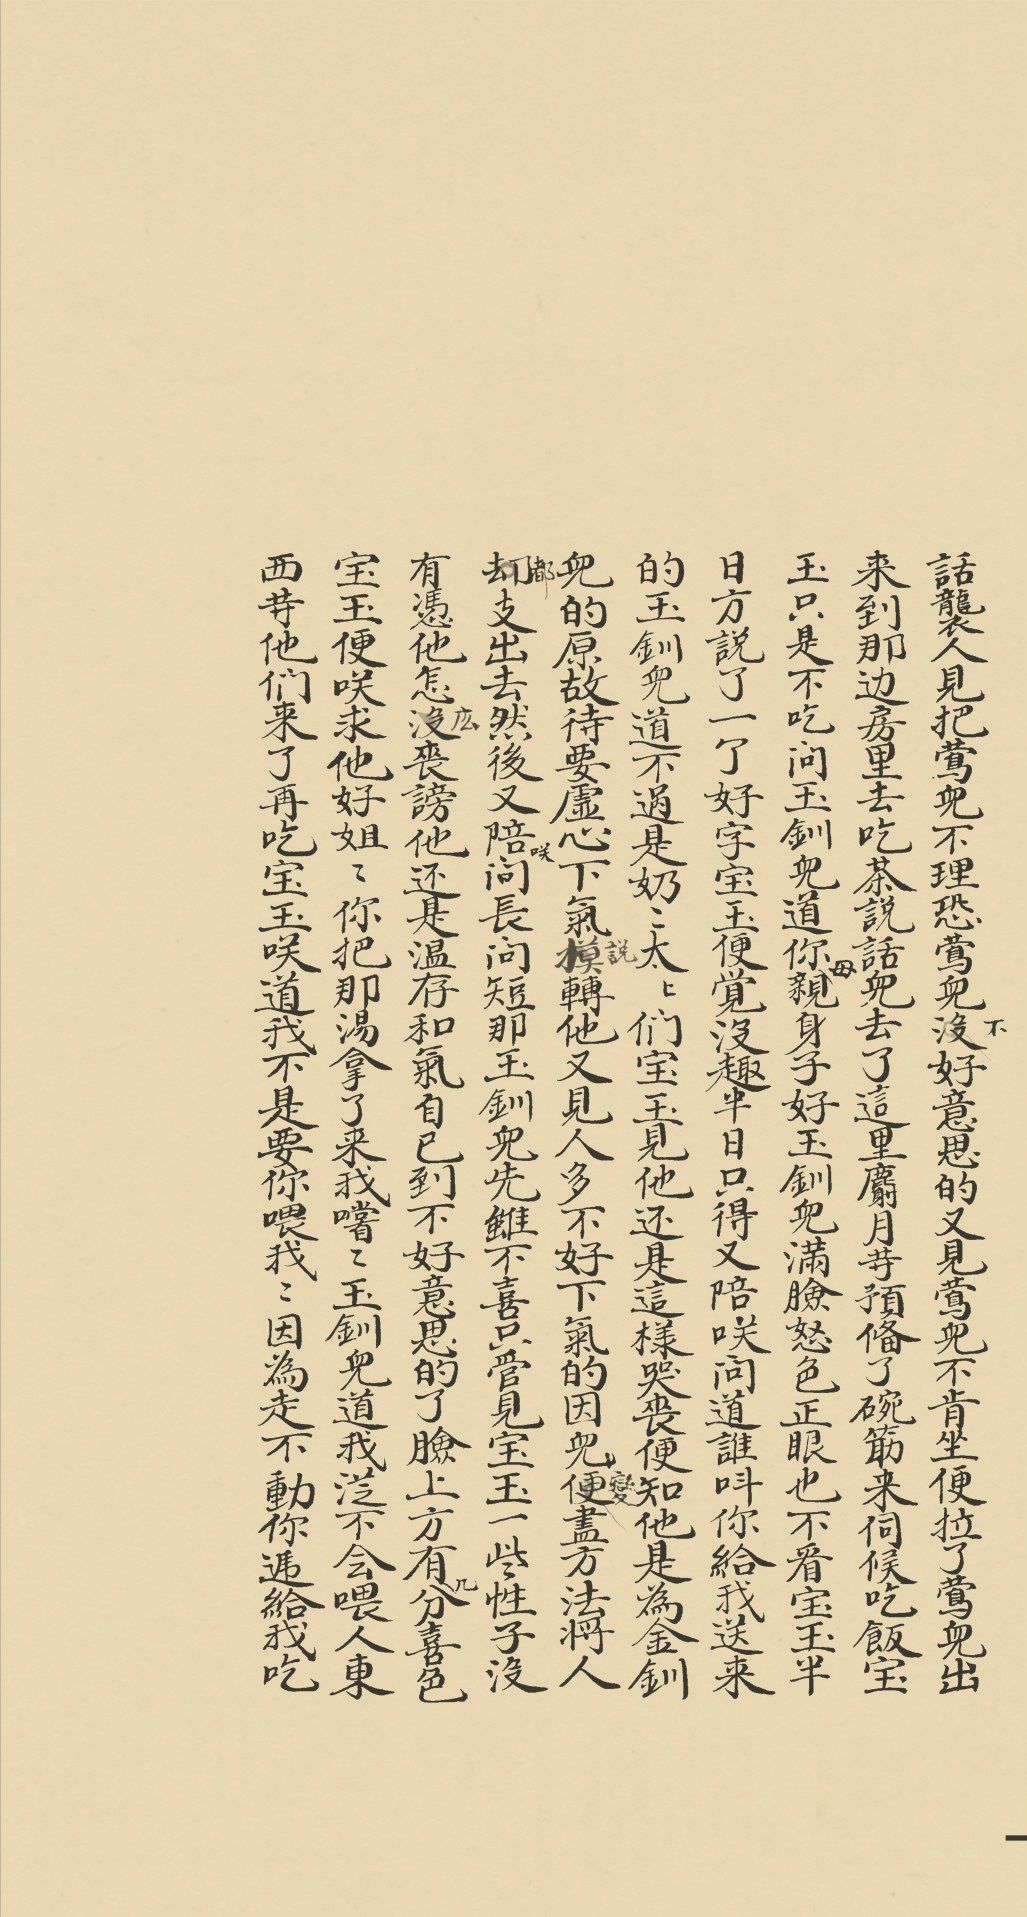 話襲人見把鶯兒不理恐鶯兒沒不好意思的又見鶯兒不肯坐便拉了鶯兒出
来到那边房里去吃茶説話兒去了這里麝月等預俻了碗筯来伺候吃飯宝
玉只是不吃问玉釧兒道你母親身子好玉釧兒滿臉怒色正眼也不看宝玉半
日方説了一个好字宝玉便覚没趣半日只得又陪咲问道誰呌你給我送来
的玉釧兒道不過是奶〻太〻们宝玉見他还是這樣哭喪便知他是為金釧
兒的原故待要虚心下氣摸説轉他又見人多不好下氣的因兒變便盡方法將人
却都支出去然後又陪咲问長问短那玉釧兒先雖不喜只管見宝玉一些性子没
有憑他怎没庅丧謗他还是温存和氣自已到不好意思的了臉上方有几分喜色
宝玉便咲求他好姐〻你把那湯拿了来我嚐〻玉釧兒道我從不会喂人東
西等他们来了再吃宝玉咲道我不是要你喂我〻因為走不動你遞給我吃